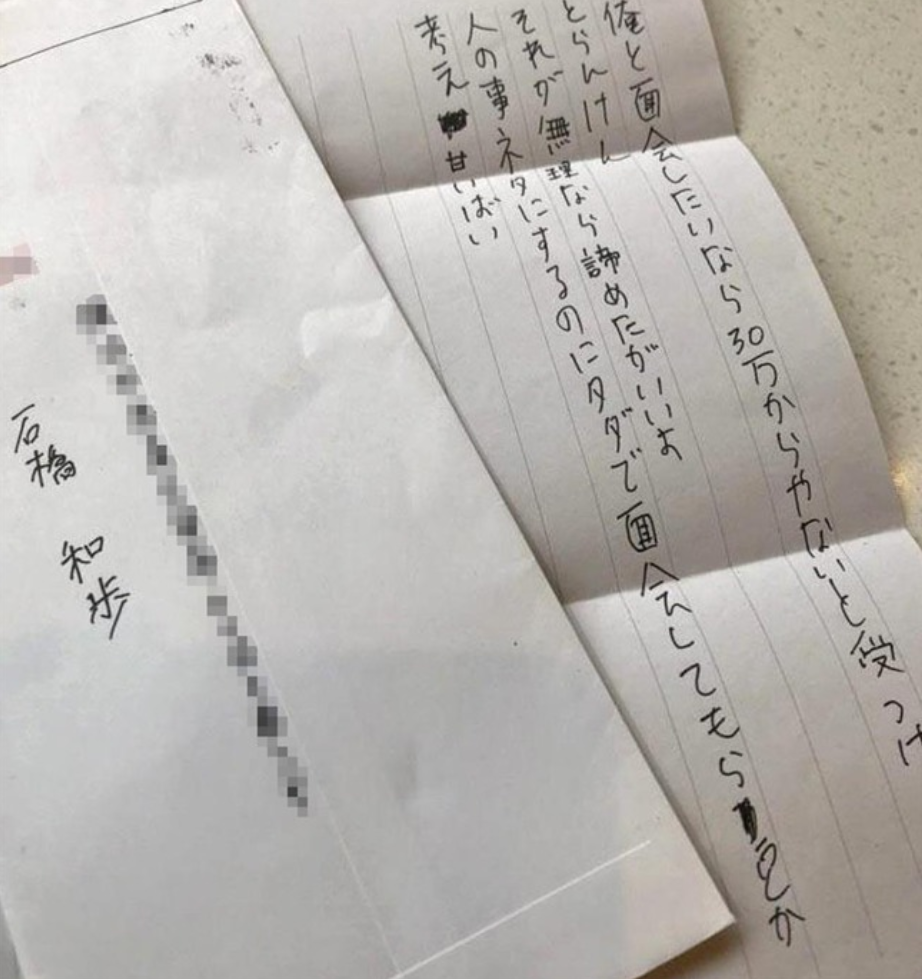 俺と面会したいなら30万からやないと受つけ
とらんけん
それが無理なら諦めたがいいよ
人の事ネタにするのにタダで面会してもらえか
考え甘いばい
石橋 和歩